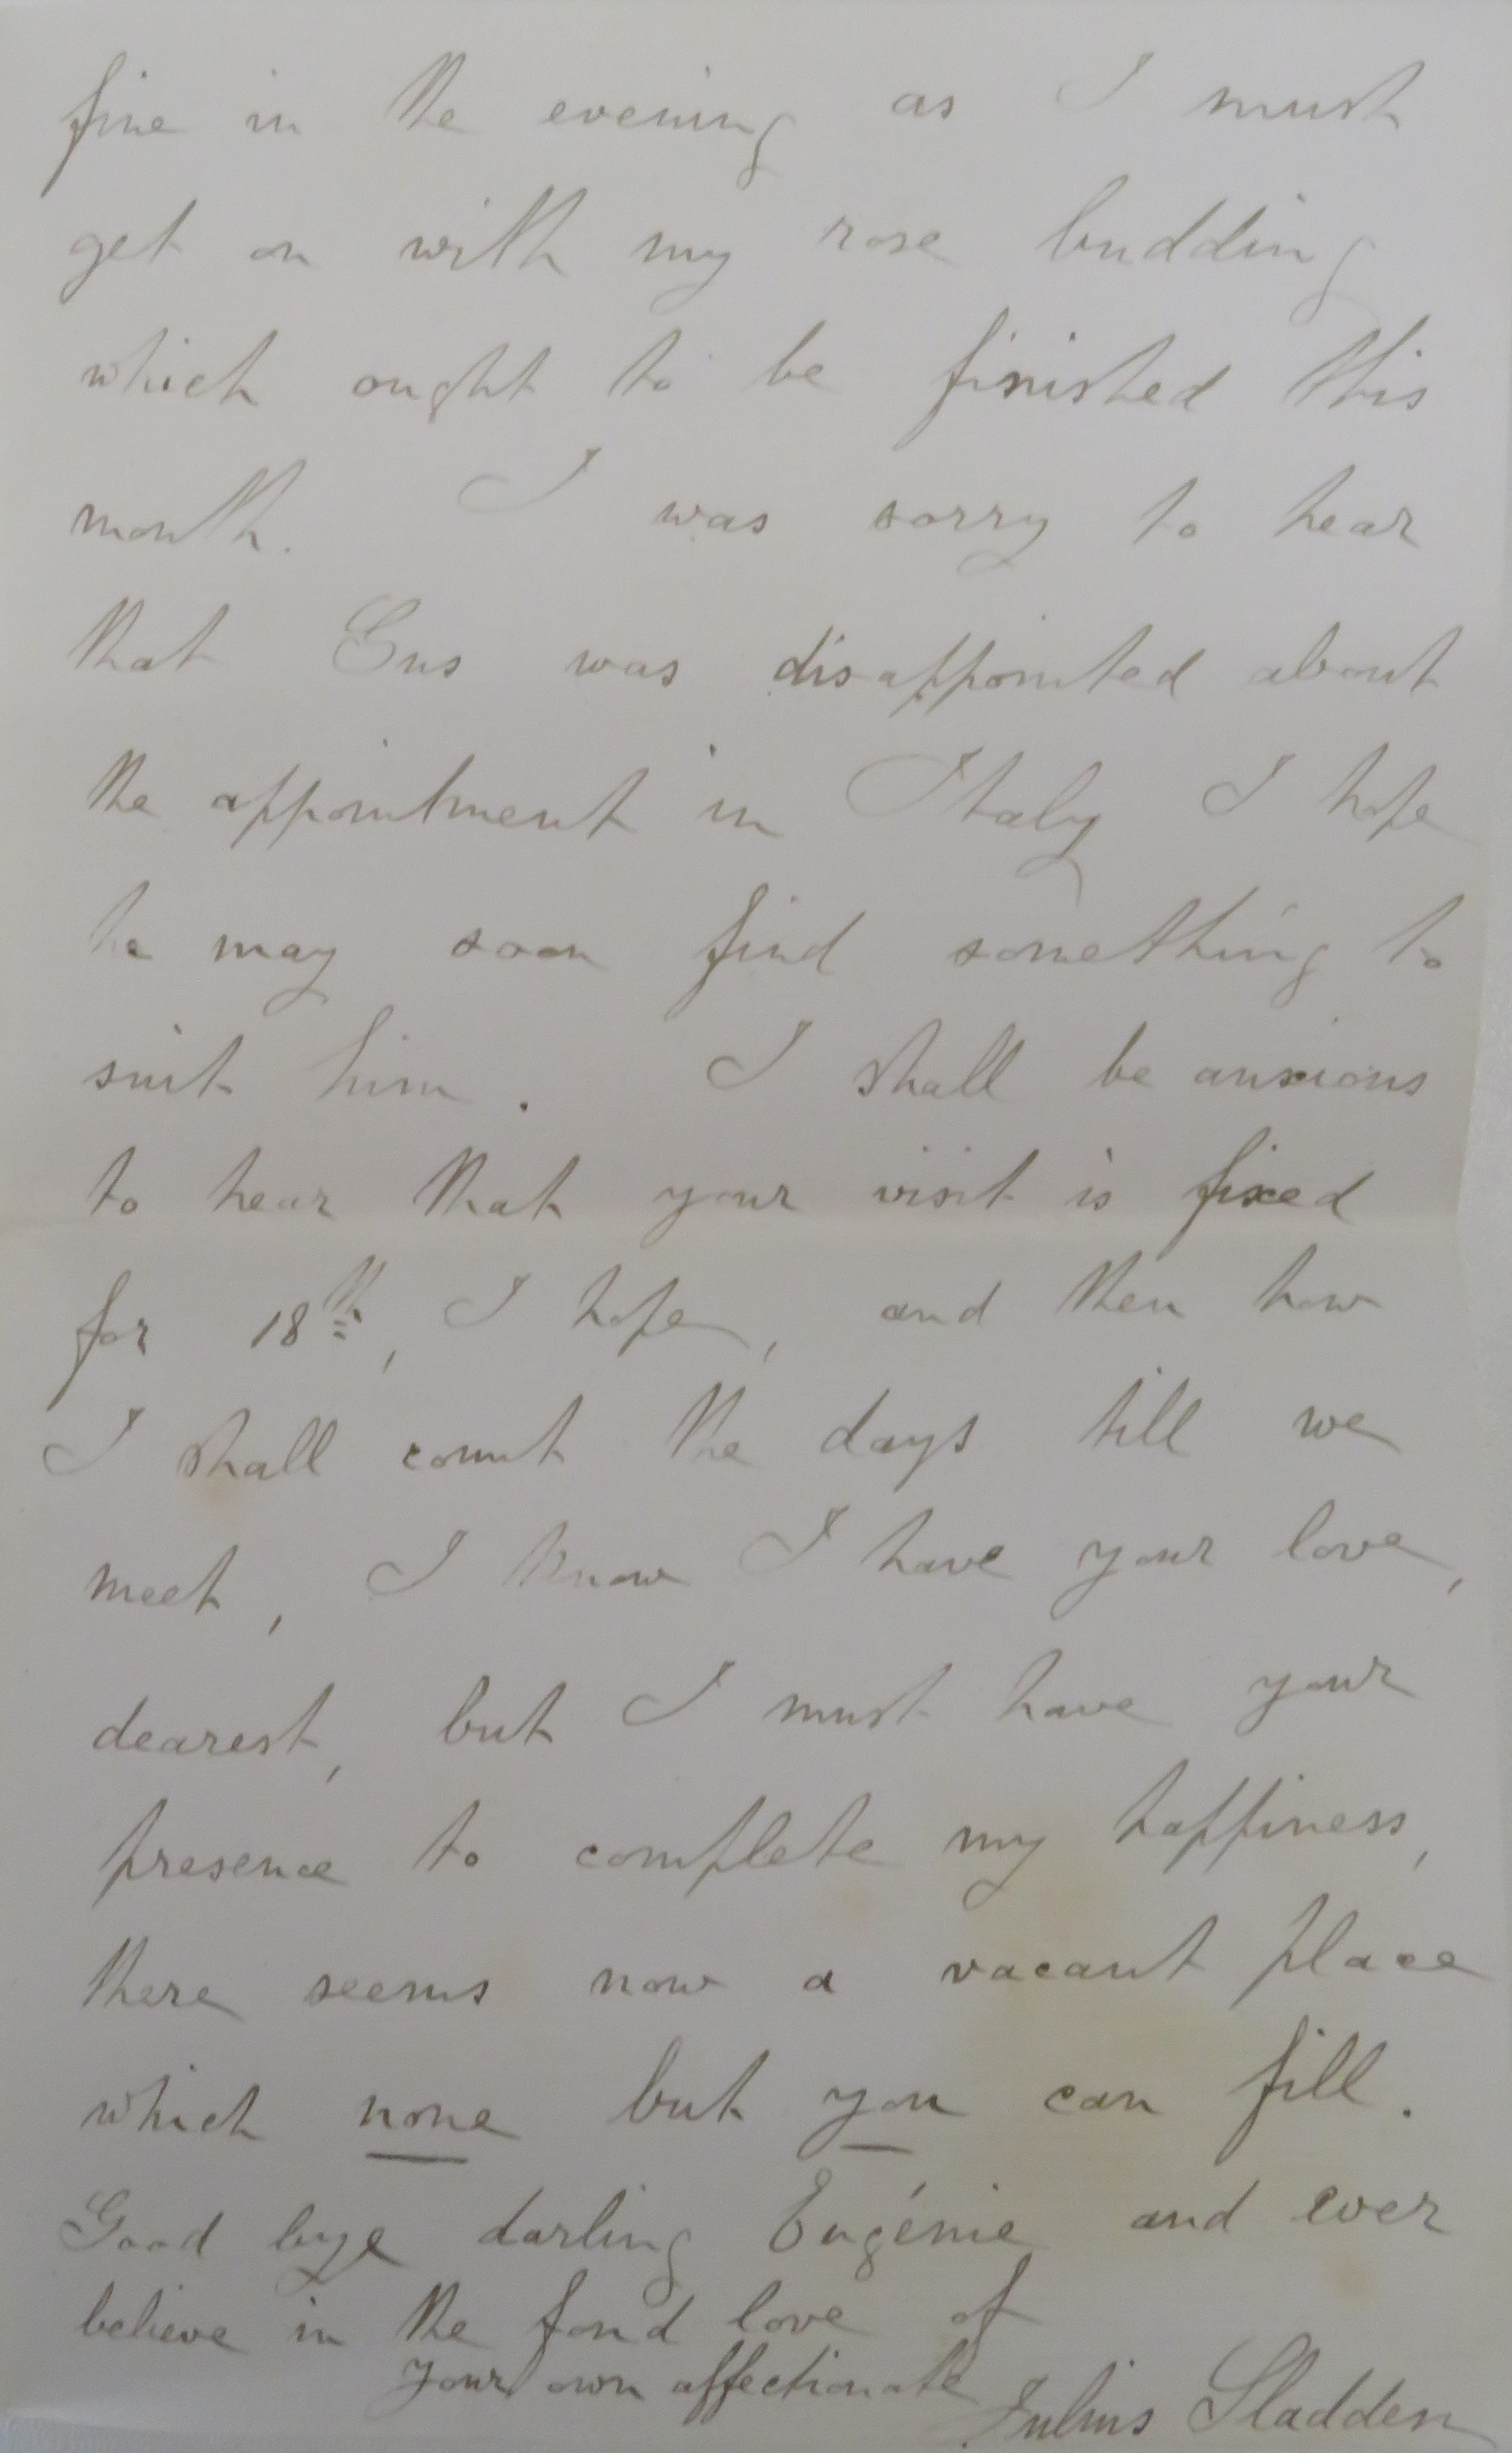 fine in the evening as I must
get on with my rose budding
which ought to be finished this
month. I was sorry to hear
that Gus was disappointed about
the appointment in Italy I hope
he may soon find something to
suit him. I shall be anxious
to hear that your visit is fixed
for 18th, I hope, and then how
I shall count the days till we
meet, I know I have your love,
dearest, but I must have your
presence to complete my happiness,
there seems now a vacant place
which none but you can fill.
Good bye darling Eugénie and ever
believe in the fond love of
your own affectionate
Julius Sladden